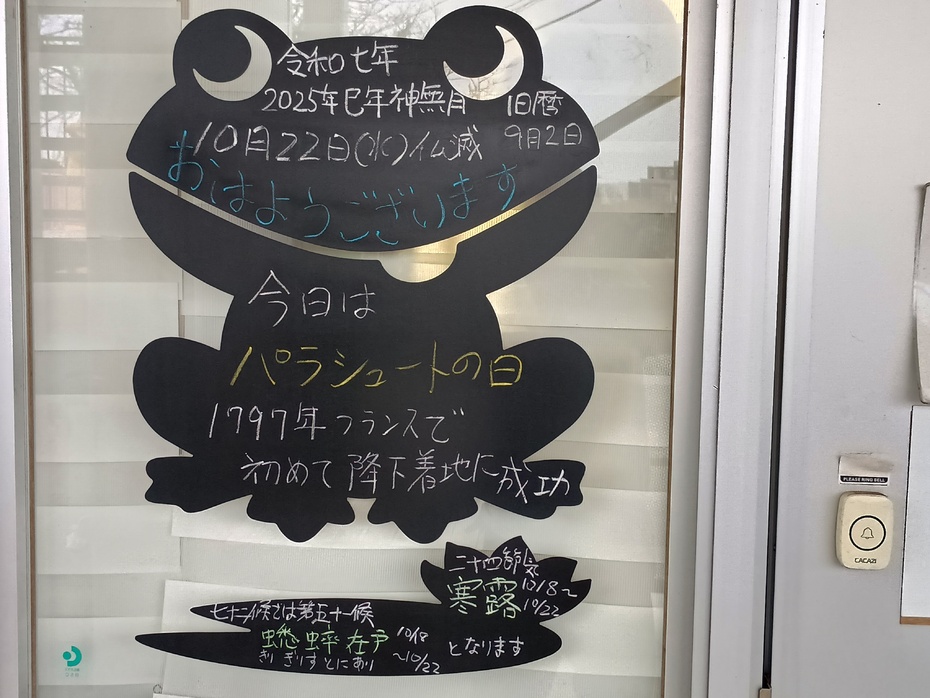 令和七年
2025年巳年神無月 旧暦
10月22日(水)仏滅 9月2日
おはようございます
今日は
パラシュートの日
1797年フランスで
初めて降下着地に成功
二十四節気
寒露 10/8~
10/22
七十二候では第五十一候
蟋蟀在戸 10/18
きりぎりすとにあり ~10/22
となります
PLEASE RING BELL
CACAZI